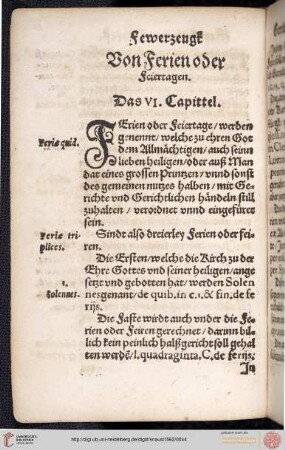 Fewerzeugk
Von Ferien oder
Feiertagen.
Das VI. Capittel.
Feriæ quid.
FErien oder Feiertage / werden
genennt / welche zu ehren Got
dem Allmächtigen / auch seinn
lieben heiligen / oder auß Man
dat eines grossen Printzen / vnnd sonst
des gemeinen nutzes halben / mit Ge-
richte vnd Gerichtlichen händeln still
zuhalten / verordnet vnnd eingefüret
sein.
Feriæ tri-
plices.
Sindt also dreierley Ferien oder fei-
ren.
1.
Solennes.
Die Ersten / welche die Kirch zu der
Ehre Gottes vnd seiner heiligen / ange
setzt vnd gebotten hat / werden Solen
nes genant / de quib. in c. 1. & fin. de fe
rijs.
Die Faste wirdt auch vnder die Fe-
rien oder Feiren gerechnet / darumb bil-
lich kein peinlich halßgericht soll gehal
ten werdē / l. quadraginta, C. de ferijs.
In